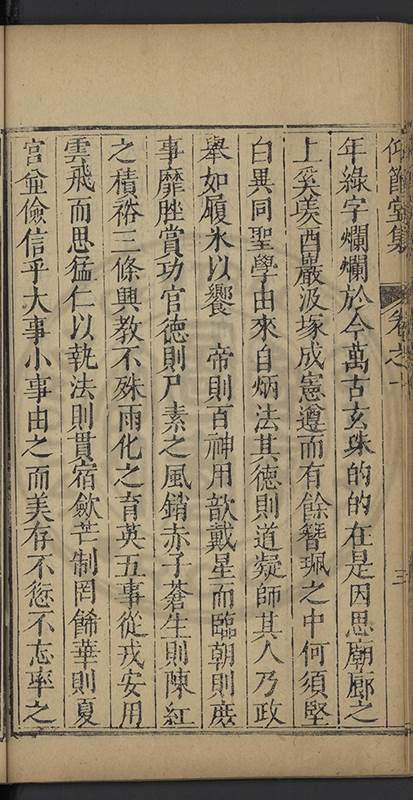 仰節堂集 卷之一 三
年綠字爛爛於今萬古玄珠的的在是因思廟廊之
上奚羨酉巖汲塚成憲遵而有餘簪珮之中何須堅
白異同聖學由來自炳法其德則道凝師其人乃政
舉如履氷以饗　帝則百神用歆戴星而臨朝則庶
事靡脞賞功官德則尸素之風銷赤子蒼生則陳紅
之積裕三條興教不殊雨化之育英五事從戎安用
雲飛而思猛仁以執法則貫宿歛芒制罔餙華則夏
宮並儉信乎大事小事由之而美存不愆不忘率之